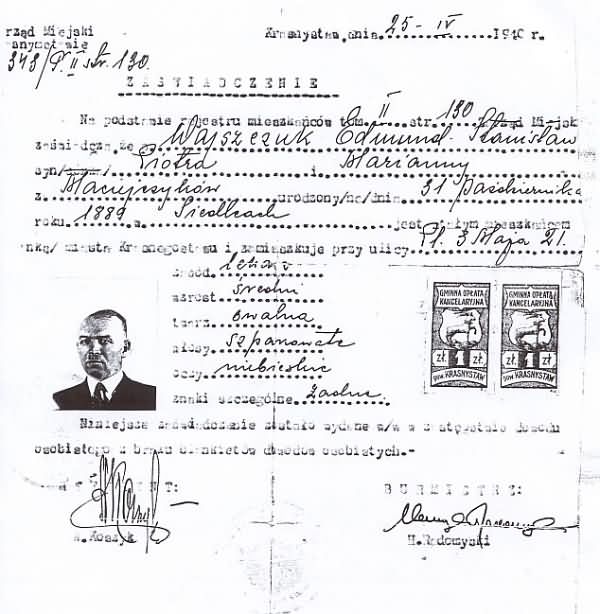 rząd Miejski
Krasnystaw, dnia 25-IV 1940 r.
343/P.II str. 130.
ZAŚWIADCZENIE
Na podstawie rejestru mieszkańców tom II str. 130 Urząd Miejsk
zaświadcza, że Wajszczuk Edmund-Stanisław
syn Piotra i Marianny
z Maciejczyków urodzony/na/dnia 31 Października
roku 1889 w Siedlcach jest stałym mieszkańcem
nką/ miasta Krasnegostawu i zamieszkuje przy ulicy Pl. 3 Maja 21.
zawód lekarz
wzrost średni
twarz owalna
włosy szpakowate
oczy niebieskie
znaki szczególne żadne
GMINNA OPŁATA KANCELARYJNA
zł. 1 zł.
POW. KRASNYSTAW
GMINNA OPŁATA KANCELARYJNA
zł. 1 zł.
POW. KRASNYSTAW
Niniejsze zaświadczenie zostało wydane w/w w zastępstwie dowodu
osobistego z braku blankietów dowodów osobistych.-
BURMISTRZ:
W. Koszyk